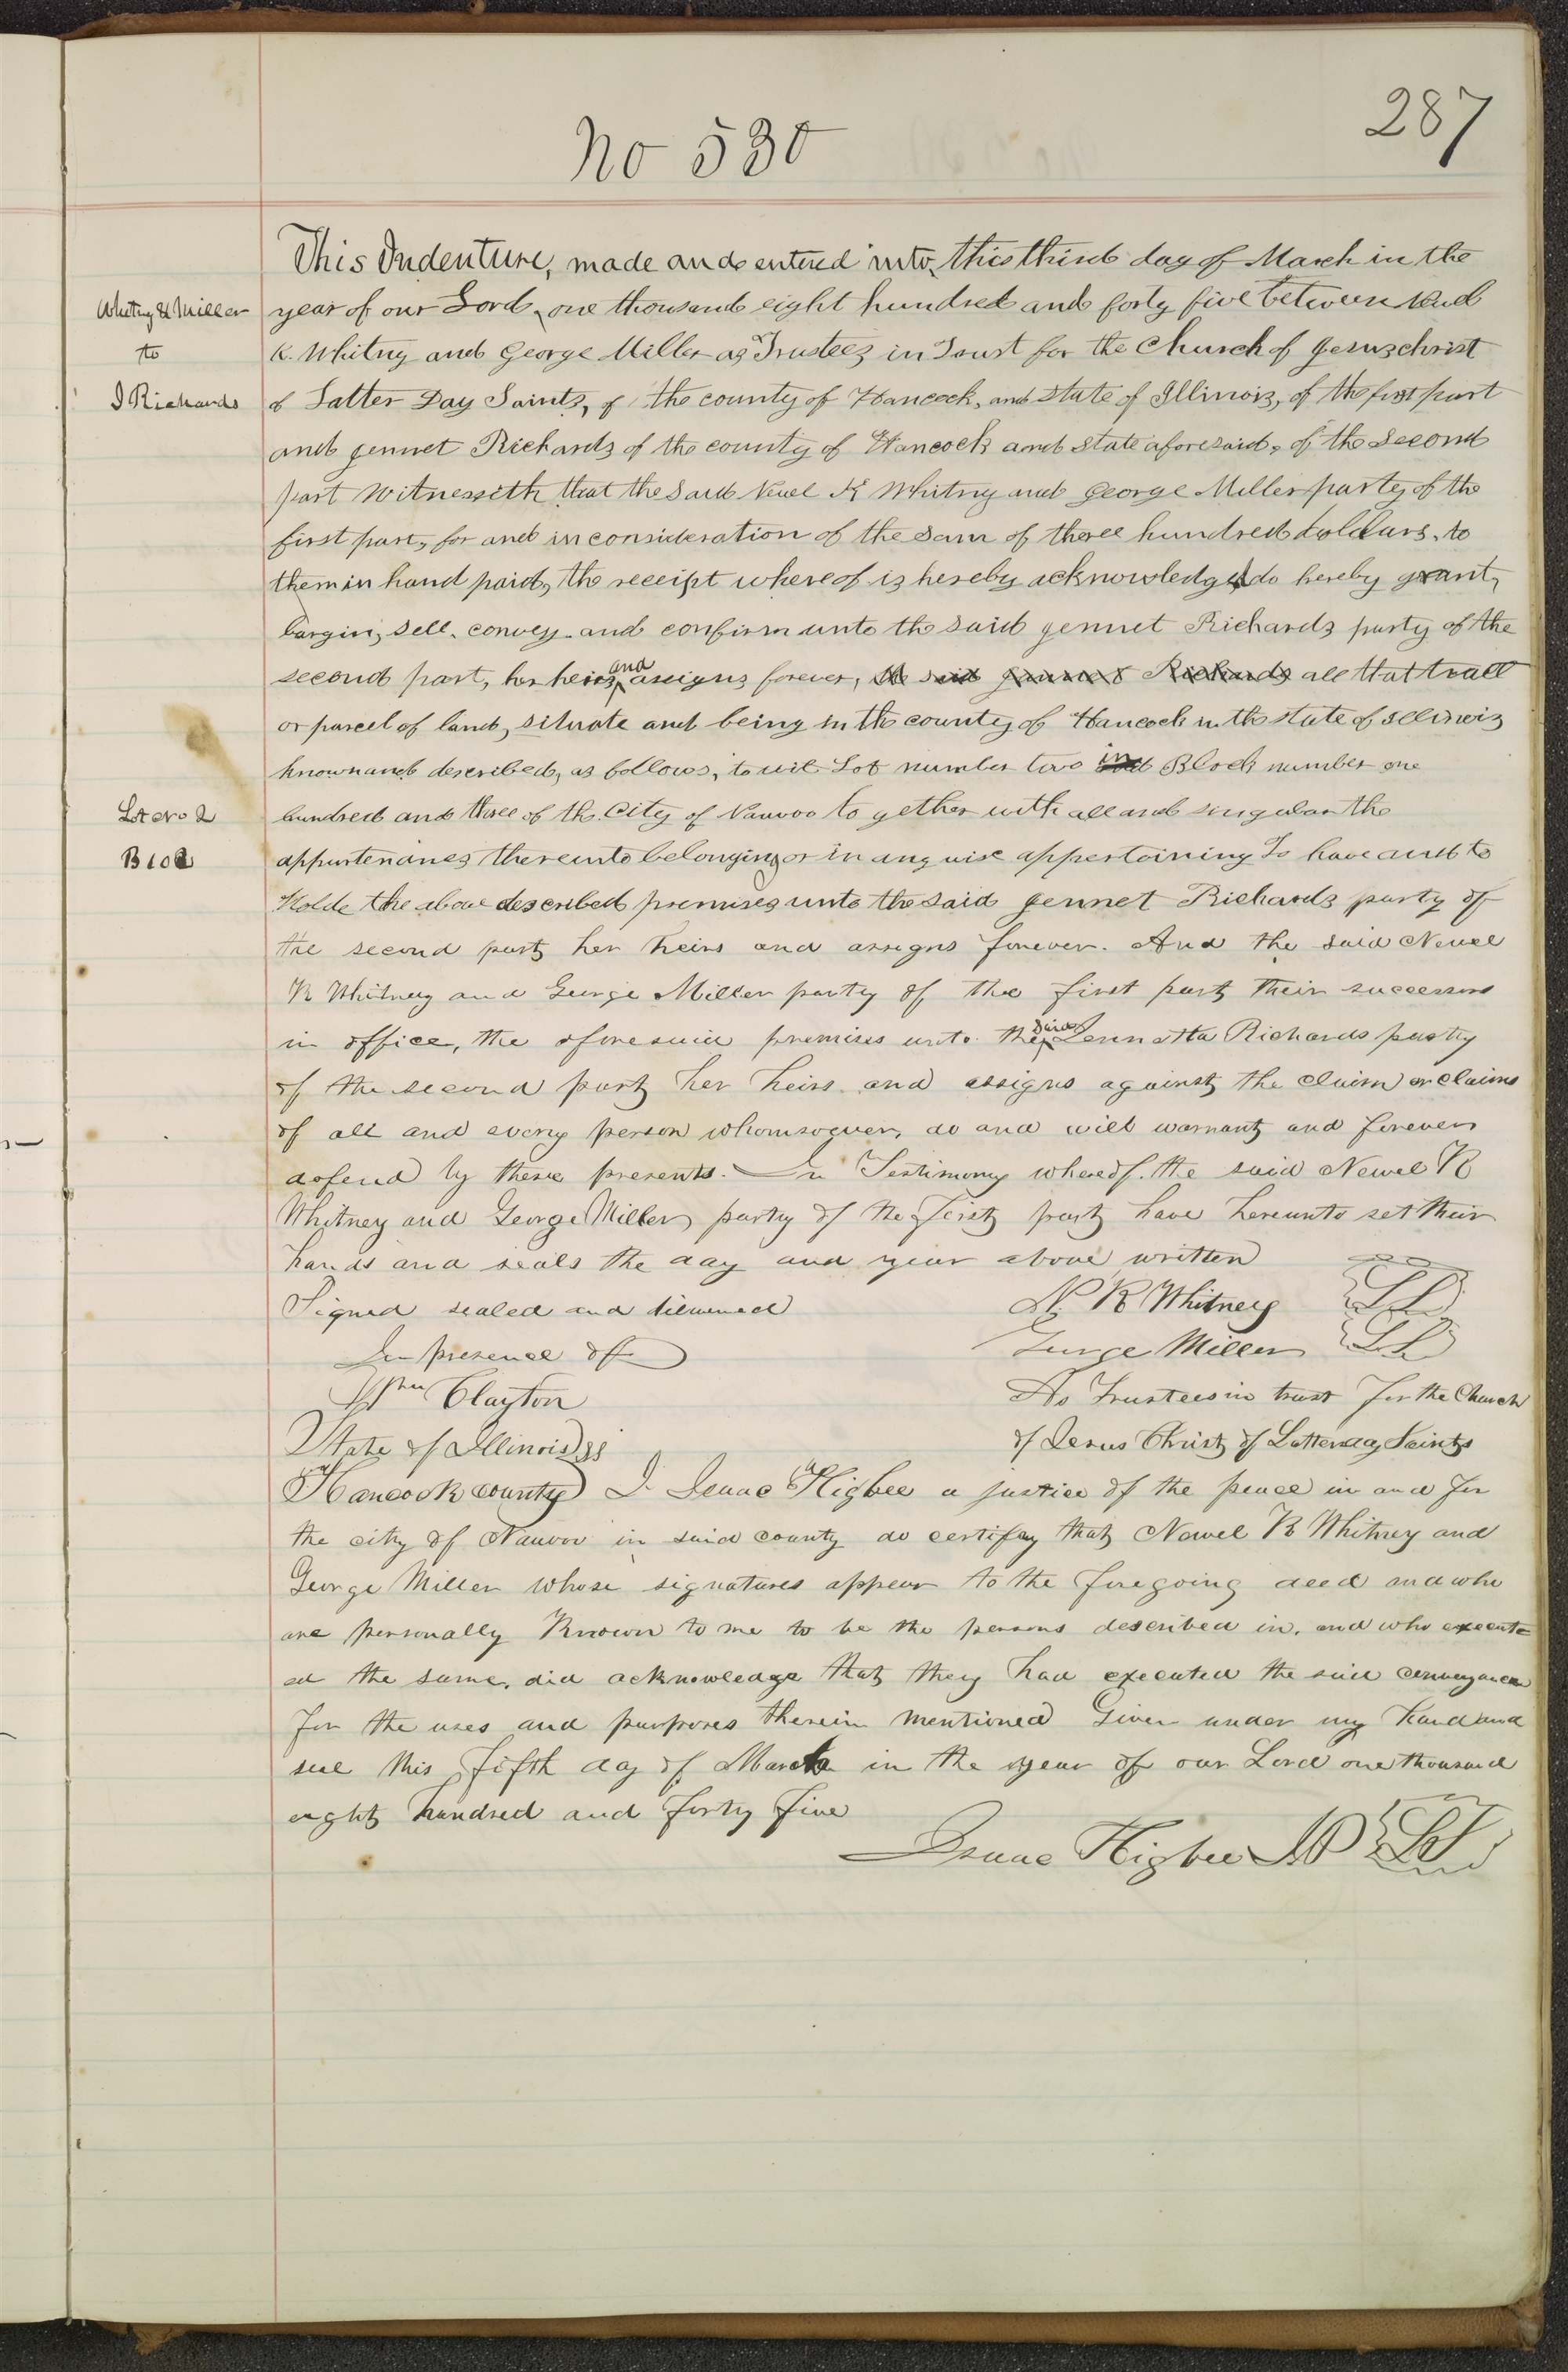 287
No 530
This Indenture, made and entered into, this third day of March in the
Whitny & Miller
to
J Richards
year of our Lord, one thousand eight hundred and forty five between Newel
K. Whitny and George Miller as Trustees in Trust for the Church of Jesus christ
of Latter Day Saints, of the county of Hancock, and state of Illinois, of the first part
and Jennet Richards of the county of Hancock and state aforesaid, of the second
part Witnesseth that the said Newel K Whitny and George Miller party of the
first part, for and in consideration of the sum of three hundred doldlars, to
them in hand paid, the receipt whereof is hereby acknowledged do hereby grant,
bargin, sell, convey and confirm unto the said Jennet Richards party of the
second part, her heirs and assigns forever, the said Jennet Richards all that tract
or parcel of land, situate and being in the county of Hancock in the state of Illinois
known and described, as follows, to wit Lot number two in Block number one
Lot No 2
B 103
hundred and three of the City of Nauvoo to gether with all and singular the
appurtenances thereunto belonging or in any wise appertaining To have and to
Holde the above described premises unto the said Jennet Richards party of
the second part her heirs and assigns forever. And the said Newel
K Whitney and George Miller party of the first part their successors
in office, the aforesaid premises unto the said Jennetta Richards party
of the second part her heirs and assigns against the claim or claims
of all and every person whomsoever, do and will warrant and forever
defend by these presents. In Testimony whereof, the said Newel K
Whitney and George Miller party of the first part have hereunto set their
hands and seals the day and year above written
Signed sealed and delivered
In presence of
Wm Clayton
N. K Whitney LS
George Miller LS
As Trustees in trust for the Church
of Jesus Christ of Latter day Saints
State of Illinois ss
Hancock county) I Isaac Higbee a justice of the peace in and for
the city of Nauvoo in said county do certifay that Newel K Whitney and
George Miller whose signatures appear to the foregoing deed and who
are personally Known to me to be the persons described in, and who execute
ed the same, did acknowledge that they had executed the said conveyance
for the uses and purposes therein mentioned Given under my hand and
seal this fifth day of March in the year of our Lord one thousand
eight hundred and forty five
Isaac Higbee JP LS